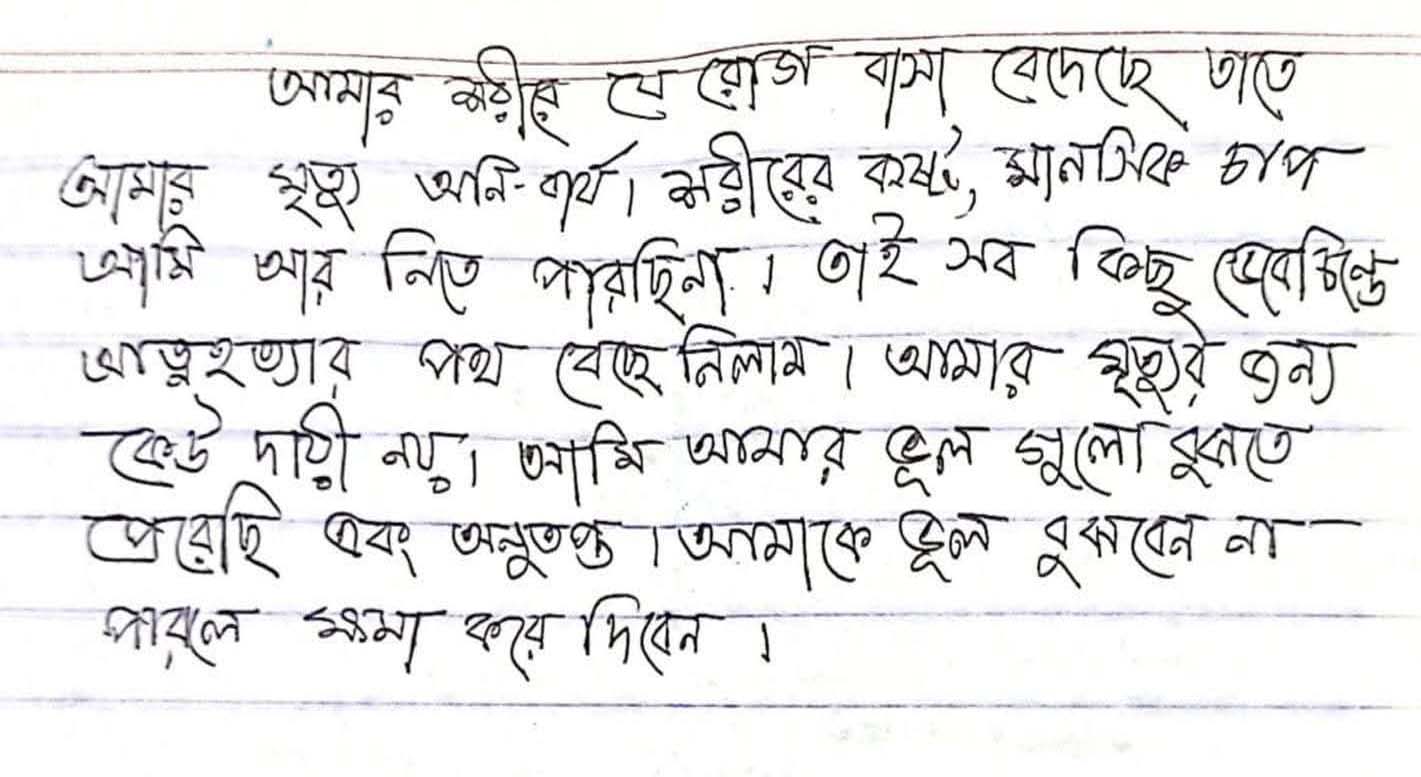 আমার শরীরে যে রোগ বাসা বেদেছে তাতে
আমার মৃত্যু অনি-বার্য। শরীরের কষ্ট, মানসিক চাপ
আমি আর নিতে পারছিনা। তাই সব কিছু ভেবেচিন্তে
আত্নহত্যার পথ বেছে নিলাম। আমার মৃত্যুর জন্য
কেউ দায়ী নয়। আমি আমার ভূল গুলো বুঝতে
পেরেছি এবং অনুতপ্ত। আমাকে ভূল বুঝবেন না
পারলে ক্ষমা করে দিবেন।